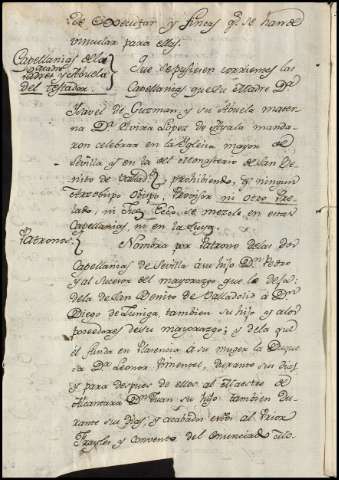 de executar, y fincas qe. se han de
vincular para ellas.
Capellanías de la
Madre
Padres y Abuela
del Testador
Que se pusiesen corrientes las
Capellanías que su Madre Da.
Isavel de Guzman, y su Abuela mater-
na Da. Elvira Lopez de Ayala manda-
ron celebrar en la Iglesia mayor de
Sevilla y en la del Monasterio de San Be-
nito de Vallad. prohibiendo, q ningun
Arzobispo Obispo, Provisor ni otro Pre-
lado, ni Juez Ecco. se mezcle en estas
Capellanías, ni en la suya.
Patronos.
Nombra por Patrono de las dos
Capellanías de Sevilla a su hijo Dn. Pedro
y al sucesor del mayorazgo que le dejó:
de la de San Benito de Valladolid á Dn.
Diego de Zuñiga, tambien su hijo y a los
poseedores de su mayorazgo; y de la que
él funda en Plasencia á su muger la Duque-
sa Da. Leonor Pimentel, durante sus dias
y para despues de ellos al Maestre de
Alcantara Dn. Juan su hijo tambien du-
rante sus dias, y acabados estos al Prior
Frayles y Convento del enunciado